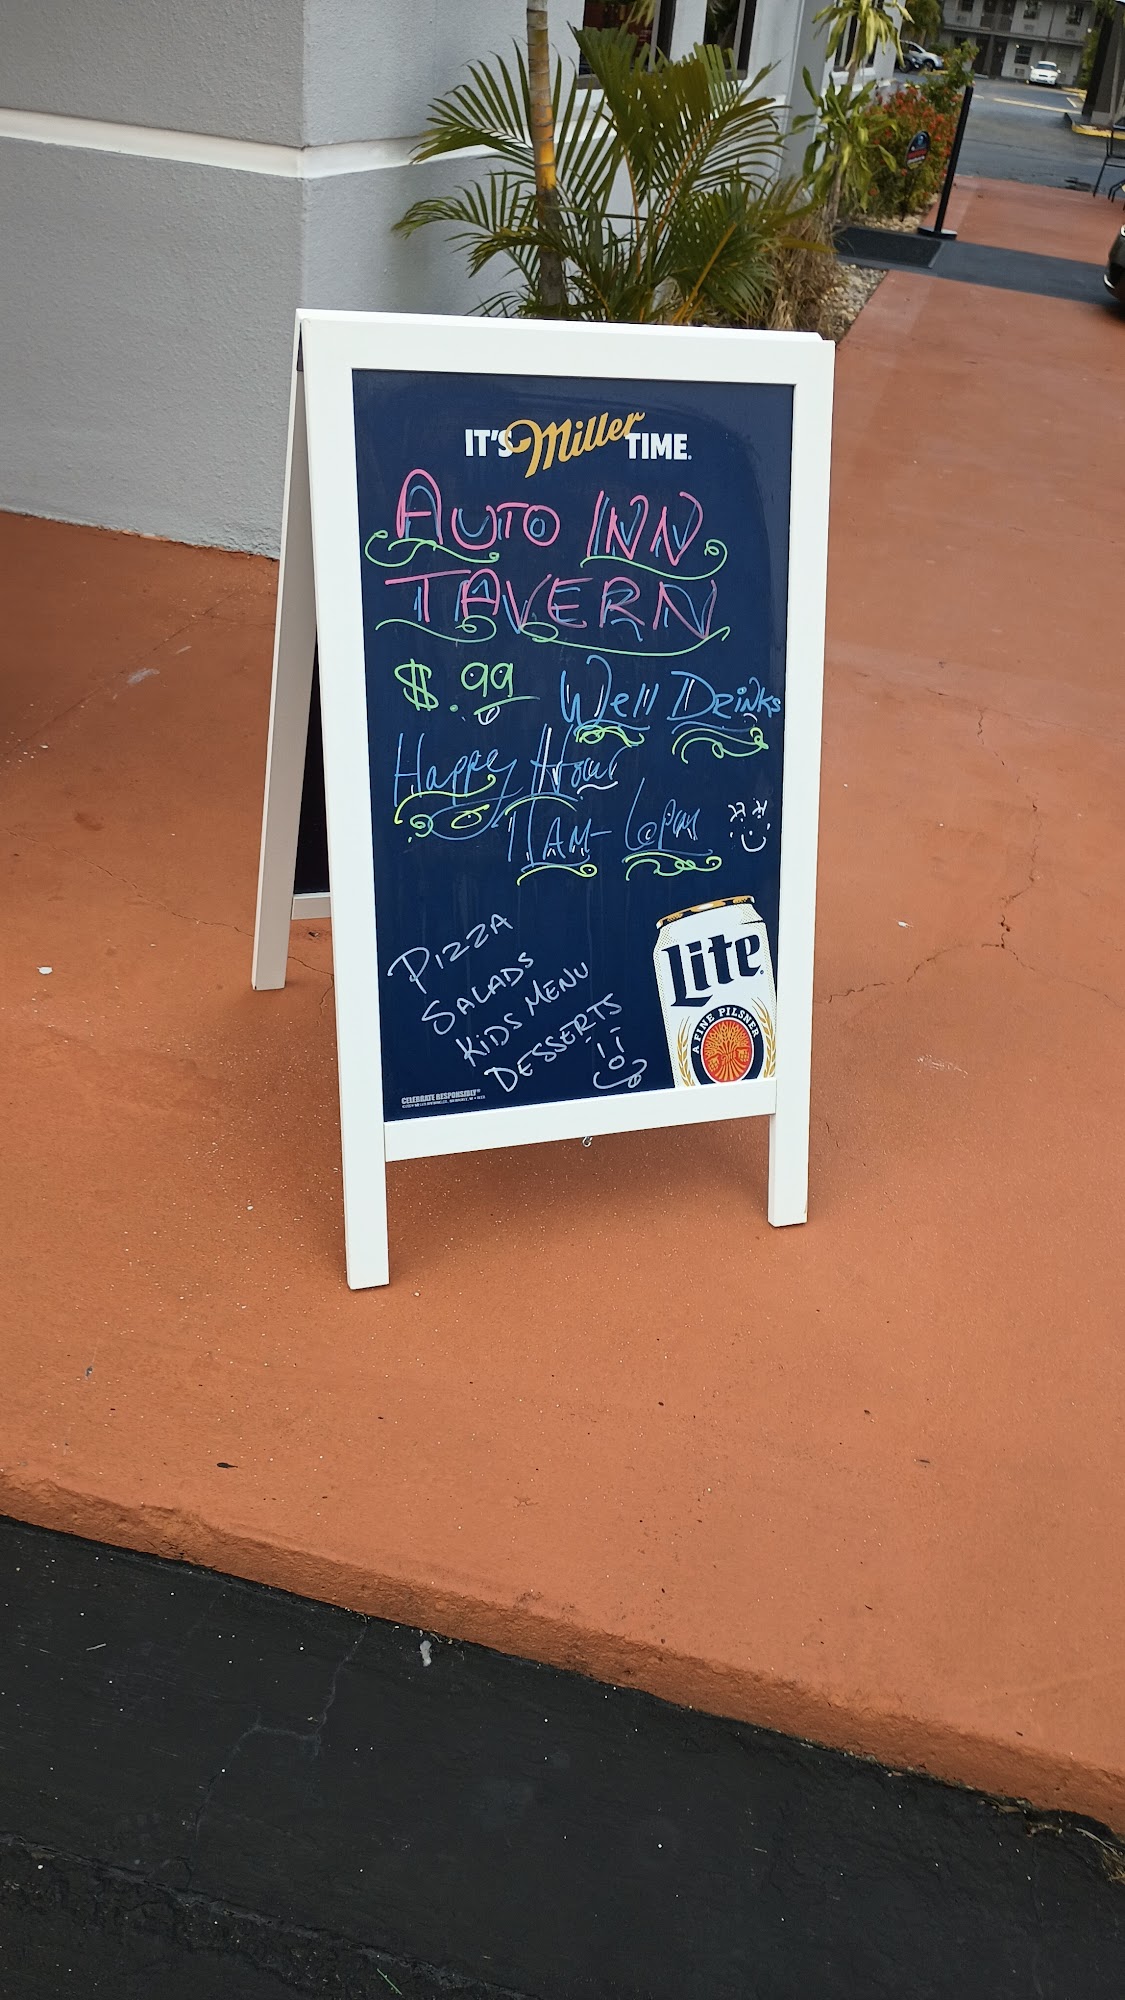 IT'S Miller TIME.
AUTO INN
TAVERN
$.99 Well Drinks
Happy Hour
11AM- 6pm
PIZZA
SALADS
KIDS MENU
DESSERTS
Lite
A FINE PILSNER
CELEBRATE RESPONSIBLY®